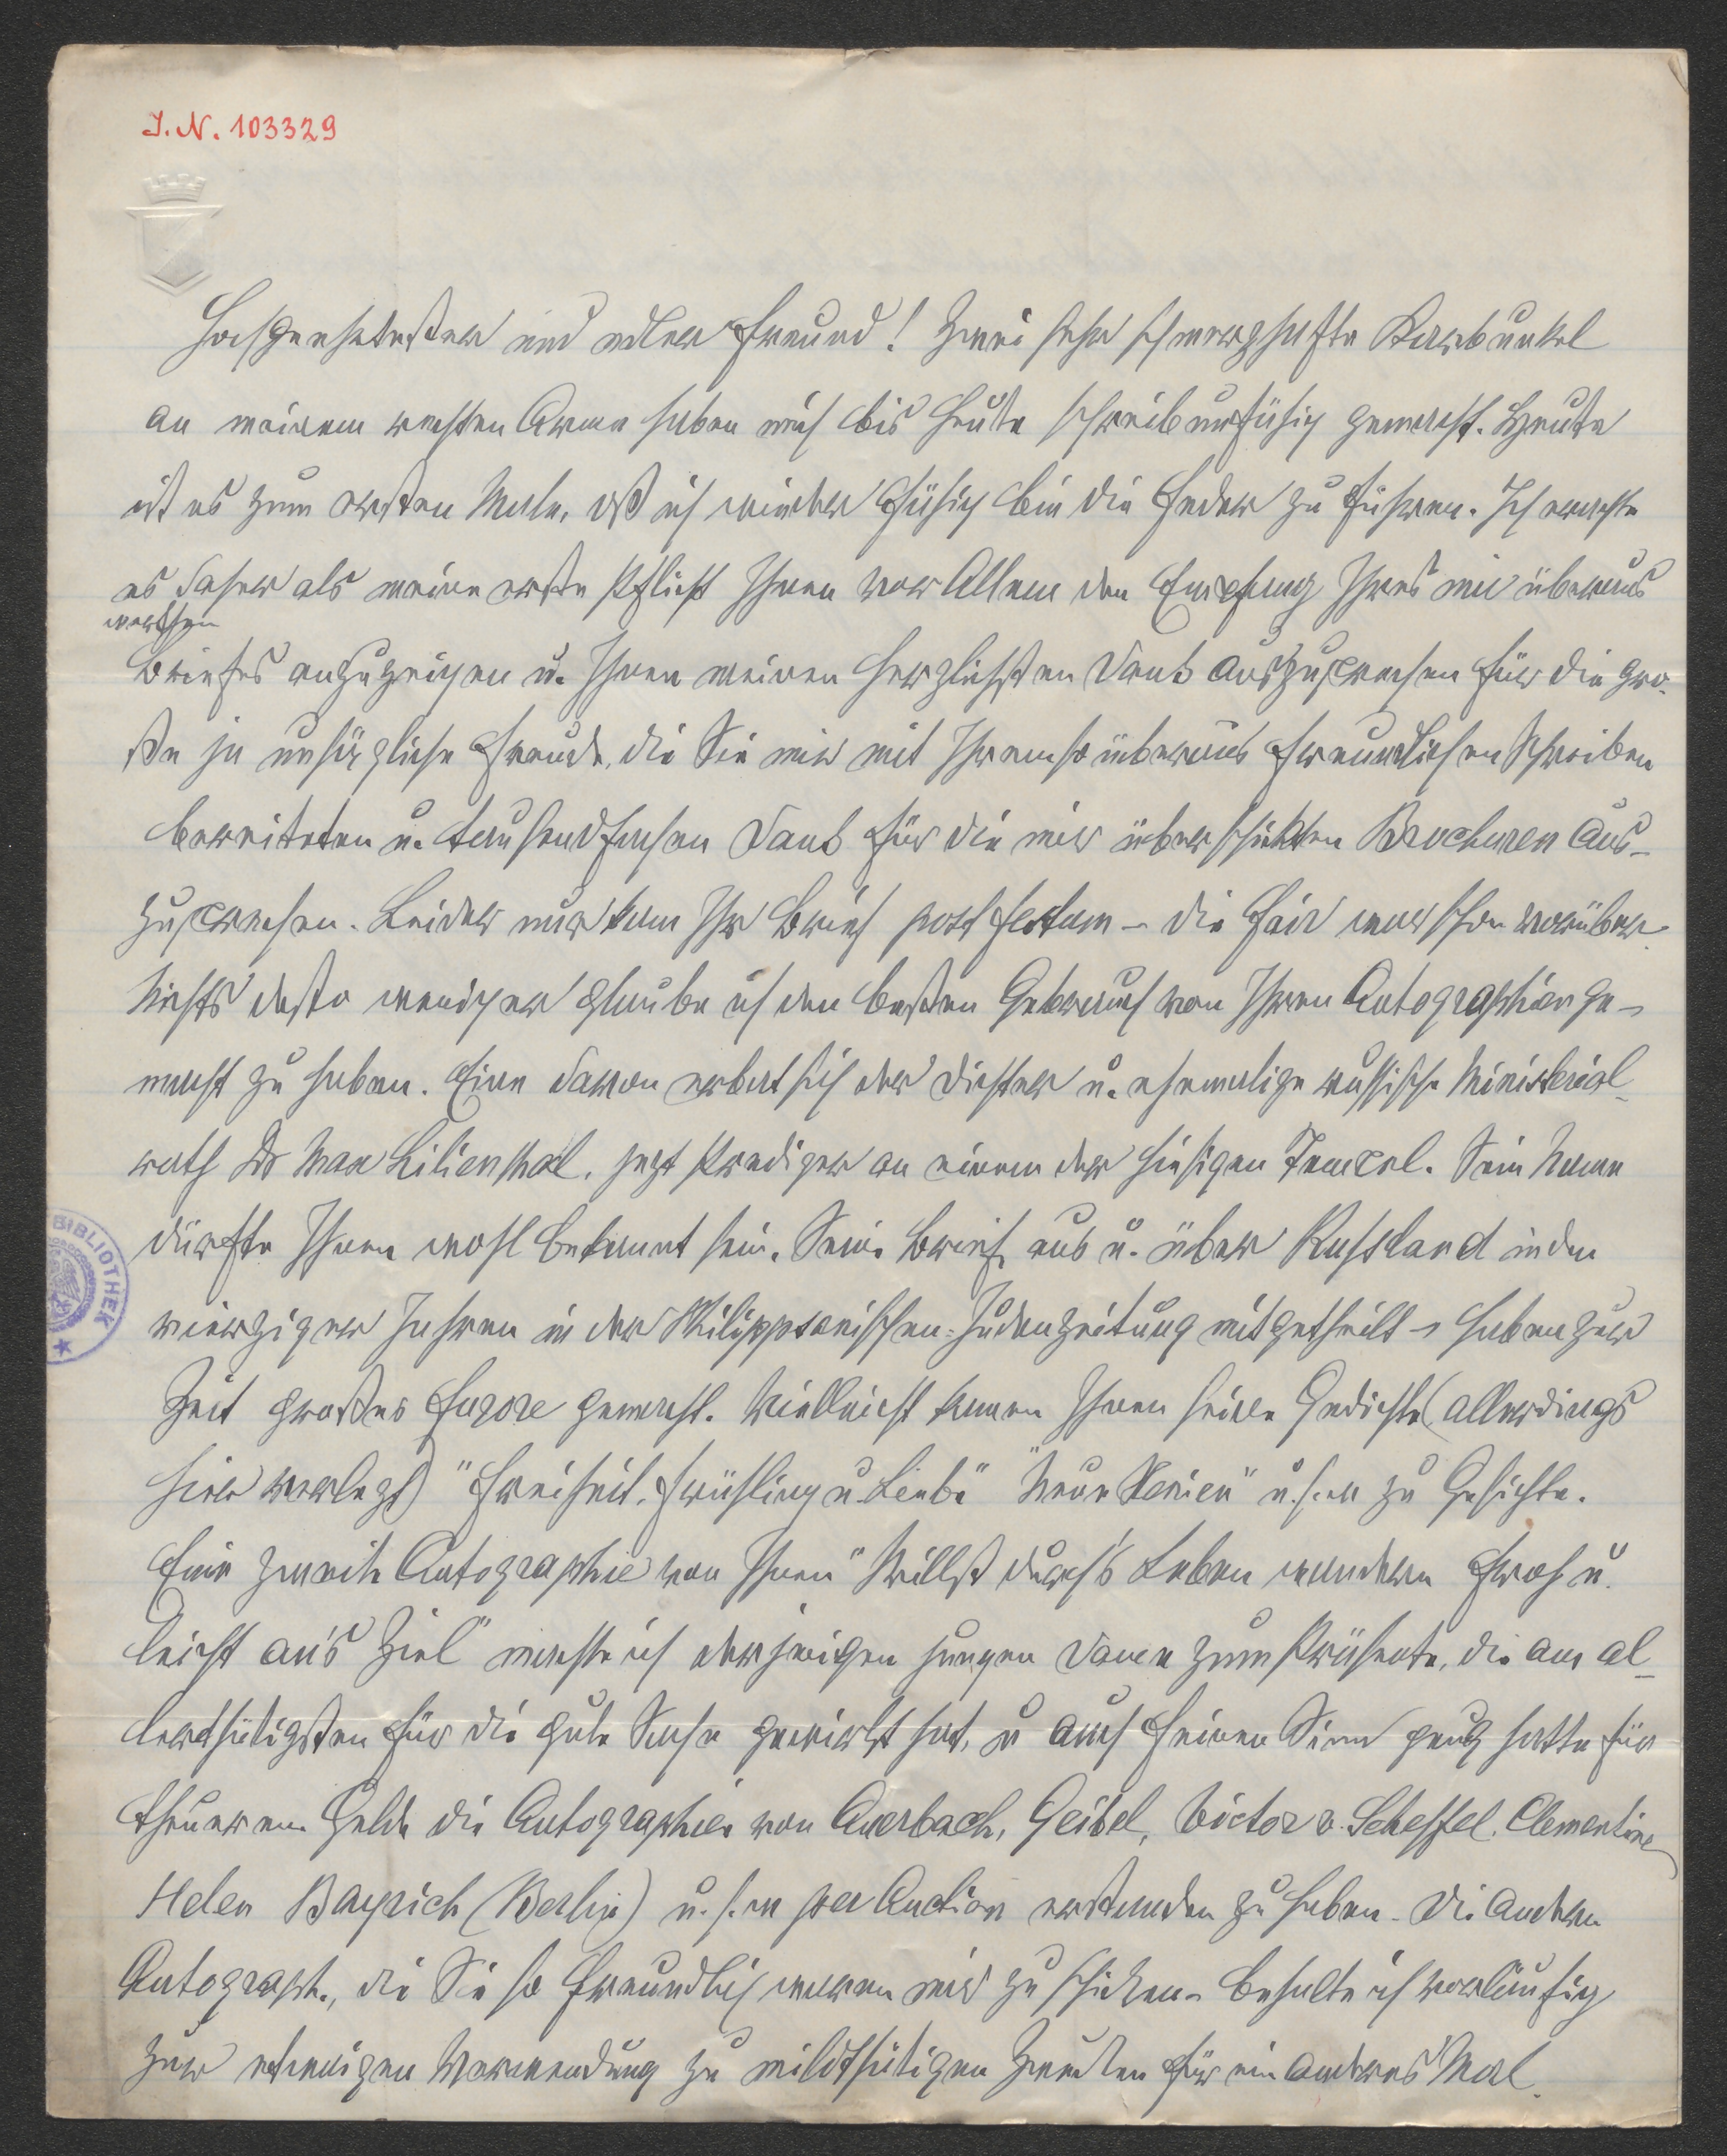 I. N. 103329
Hochgeehrtester und edler Freund! Zwei sehr schmerzhafte Karbunkel
an meinem rechten Arme haben mich bis heute schreibunfähig gemacht. Heute
ist es zum ersten Male, dß ich wieder fähig bin die Feder zu führen. Ich erachte
es daher als meine erste Pflicht Ihnen vor Allem den Empfang Ihres mir überaus
werthen
Briefes anzuzeigen u. Ihnen meinen herzlichsten Dank auszusprechen für die gro-
ße ja unsägliche Freude, die Sie mir mit Ihrem so überaus freundlichen Schreiben
bereiteten u. tausendfachen Dank für die mir überschickten Brochuren aus-
zusprechen. Leider nur kam Ihr Brief post festum – die Fair war schon vorüber.
Nichts desto weniger glaube ich den besten Gebrauch von Ihren Autographien ge-
macht zu haben. Eine davon erbat sich der Dichter u. ehemalige russische Ministerial-
rath Dr Max Lilienthal, jezt Prediger an einem der hiesigen Tempel. Sein Name
dürfte Ihnen wohl bekannt sein. Seine Briefe aus u. über Russland in den
vierziger Jahren in der Philippsonischen Judenzeitung mitgetheilt – haben zur
Zeit großes Furore gemacht. Vielleicht kamen Ihnen seine Gedichte (allerdings
hier verlegt) "Freiheit, Frühling u. Liebe" "Neue Xenien" u.s.w zu Gesichte.
Eine zweite Autographie von Ihnen "Willst durch's Leben wandern froh u.
leicht an's Ziel" machte ich derjenigen jungen Dame zum Präsente, die am al-
lerthätigsten für die gute Sache gewirkt hat, u auch feinen Sinn genug hatte für
theueren Gelde die Autographien von Auerbach, Geibel, Victor v. Scheffel, Clementine
Helen Bayrich (Berlin) u. s. w per Auction erstanden zu haben. Die andern
Autograph., die Sie so freundlich waren mir zu schicken – behalte ich vorläufig
zur etwaigen Verwendung zu mildthätigen Zwecken für ein anderes Mal.
BIBLIOTHEK